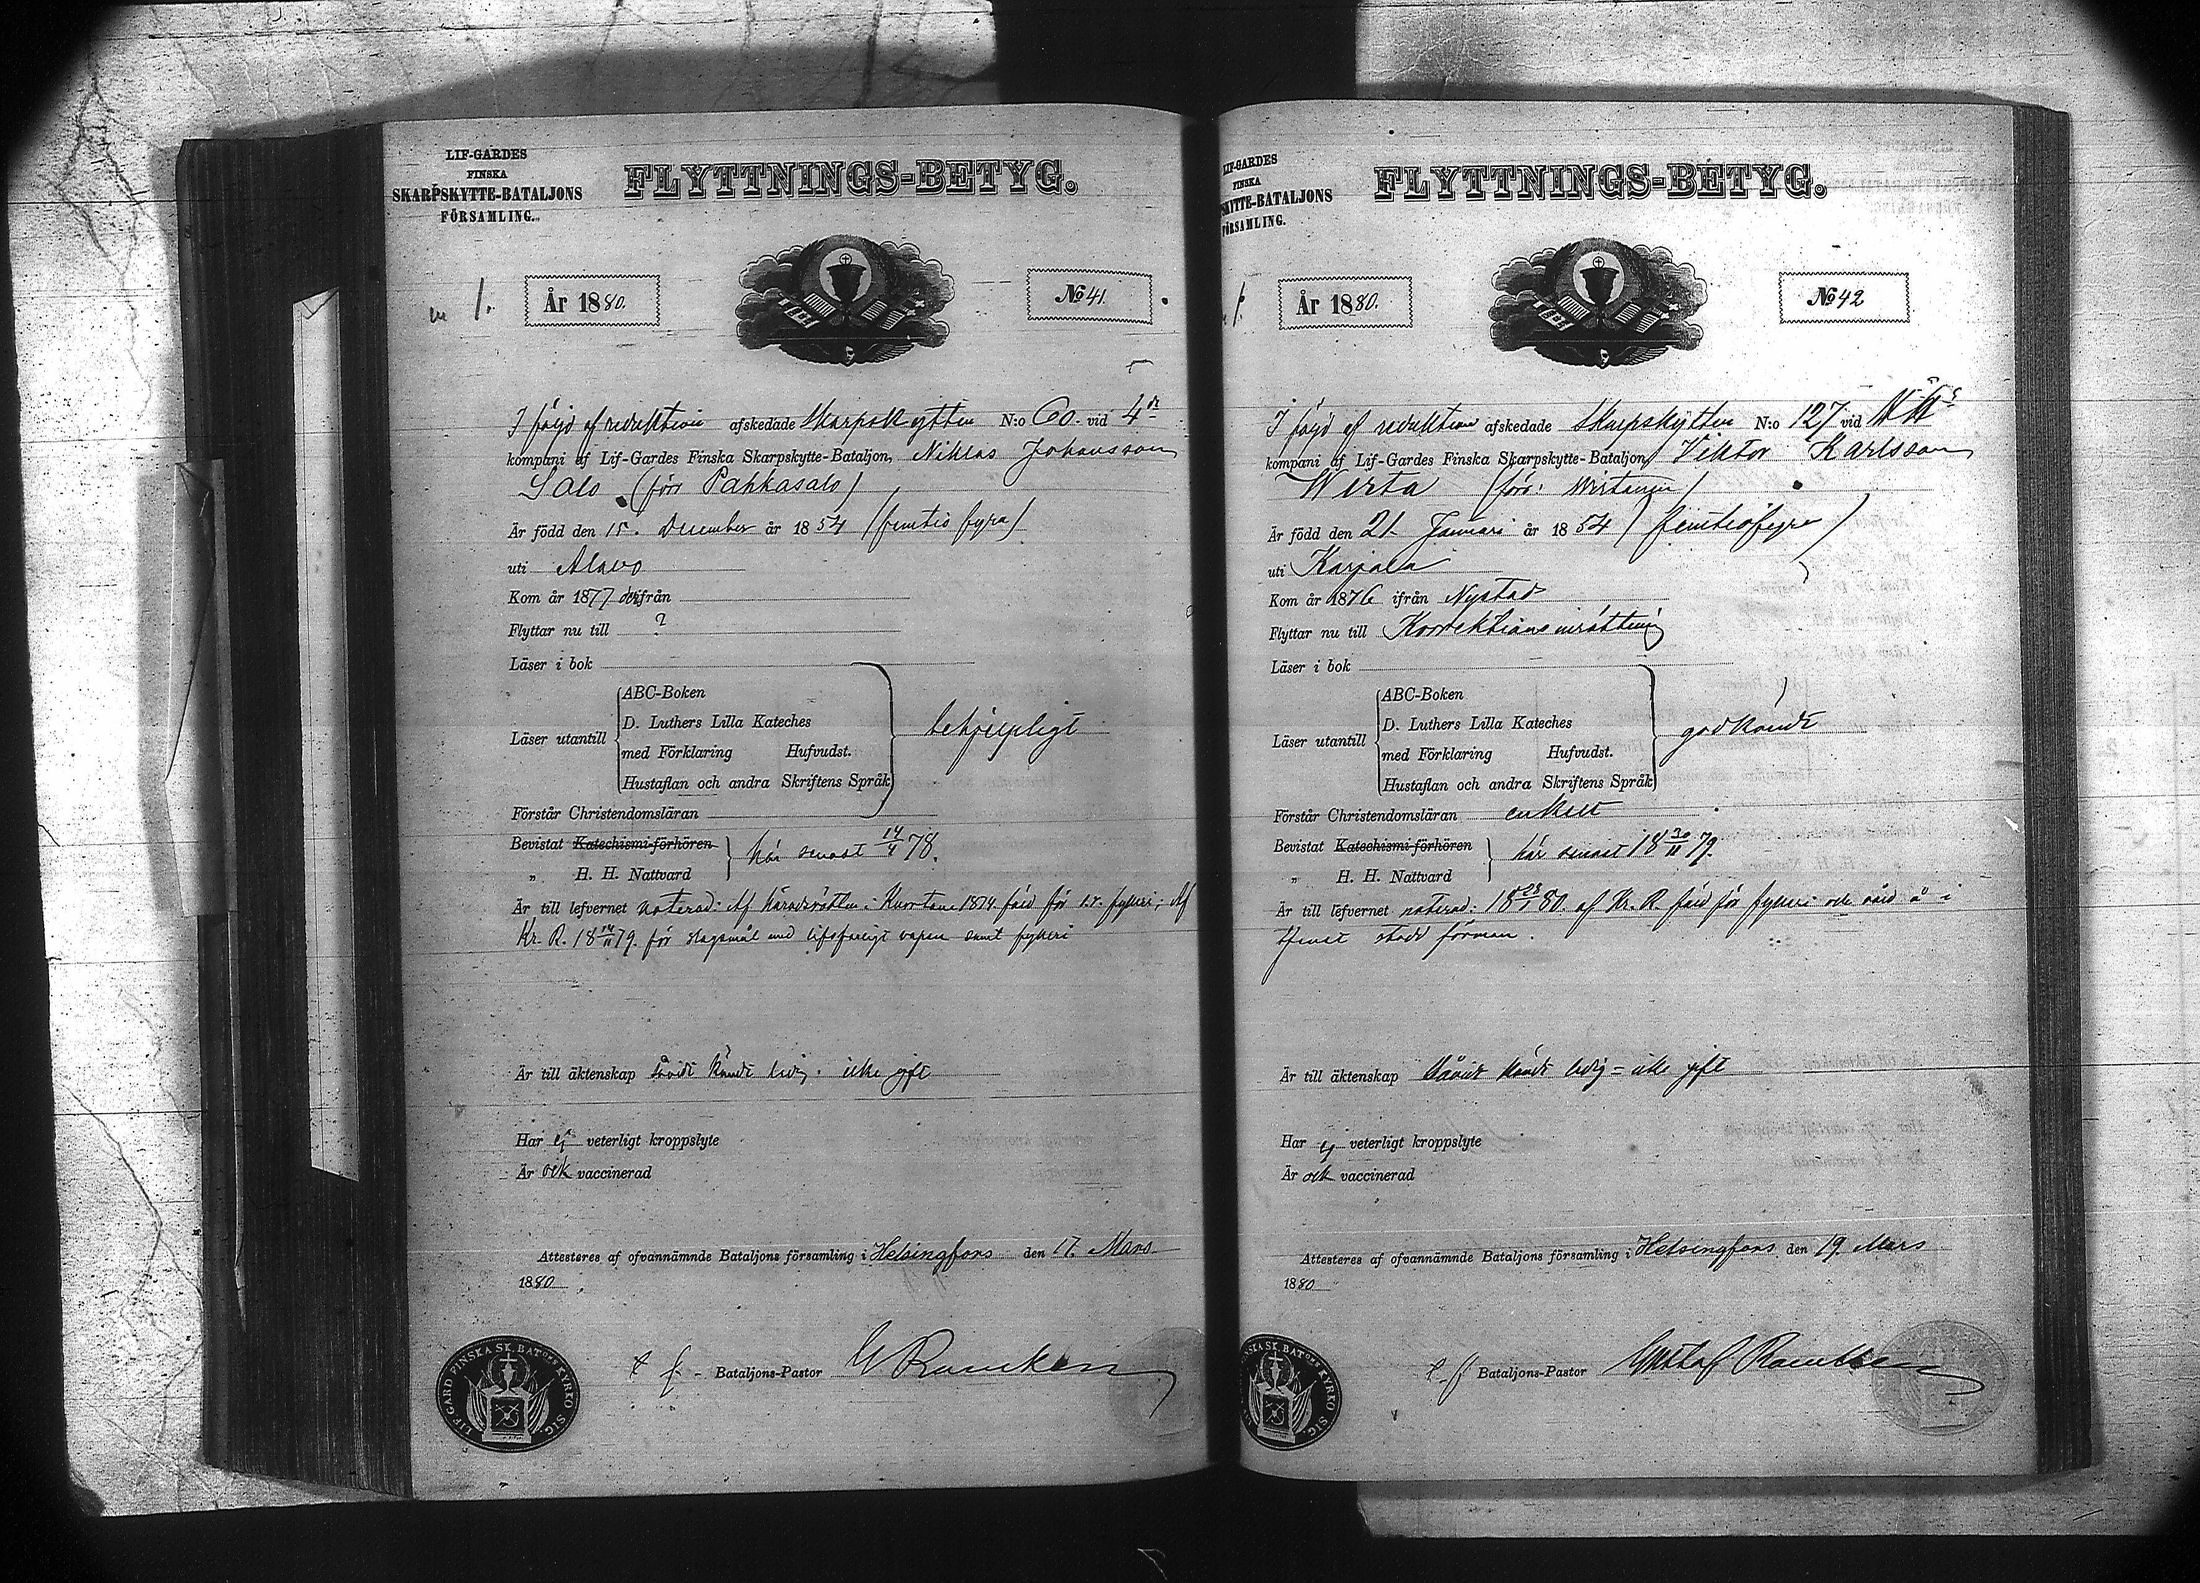 LIF-GARDES
FINSKA
SKARPSKYTTE-BATALJONS
FÖRSAMLING.
FLYTTNINGS-BETYG.
1.
År 1880.
No 41.
I följd af reduktion afskedade Skarpskytten N:o 60. vid 4de
kompani af Lif-Gardes Finska Skarpskytte-Bataljon, Niklas Johansson
Salo (förr Pakkasalo)
Är född den 15. December år 1854 (femtio fyra)
uti Alavo
Kom år 1877 ifrån
Flyttar nu till ?
Läser i bok
Läser utantill
ABC-Boken
D. Luthers Lilla Kateches
med Förklaring Hufvudst.
Hustaflan och andra Skriftens Språk
behjelpligt
Förstår Christendomsläran
Bevistat Katechismi-förhören
„ H. H. Nattvard
här senast 14/4 78.
Är till lefvernet noterad: Af Häradsrätten i Kuortane 1874 fäld för fylleri; Af
Kr. R. 18 14/11 79. för slagsmål med lifsfarligt vapen samt fylleri
Är till äktenskap såvidt kändt ledig - icke gift
Har ej veterligt kroppslyte
Är ock vaccinerad
Attesteres af ofvannämnde Bataljons församling i Helsingfors den 17. Mars
1880
t. f. - Bataljons-Pastor G Ramcken
LIF-GARD FINSKA SK. BAT KYRKO SIG.
LIF-GARDES
FINSKA
SKYTTE-BATALJONS
FÖRSAMLING.
FLYTTNINGS-BETYG.
1.
År 1880.
No 42
I följd af reduktion afskedade Skarpskytten N:o 127 vid
kompani af Lif-Gardes Finska Skarpskytte-Bataljon, Viktor Karlsson
Wirta (förr: Wirtanen)
Är född den 21. Januari år 1854 (femtiofyra)
uti Karjala
Kom år 1876 ifrån Nystad
Flyttar nu till Korrektionsinrättning
Läser i bok
Läser utantill
ABC-Boken
D. Luthers Lilla Kateches
med Förklaring Hufvudst.
Hustaflan och andra Skriftens Språk
godkändt
Förstår Christendomsläran enkelt
Bevistat Katechismi-förhören
„ H. H. Nattvard
här senast 18 30/11 79.
Är till lefvernet noterad: 18 28/1 80. af Kr. R. fäld för fylleri och våld å i
tjenst stadd förman.
Är till äktenskap såvidt kändt ledig = icke gift
Har ej veterligt kroppslyte
Är ock vaccinerad
Attesteres af ofvannämnde Bataljons församling i Helsingfors den 19. Mars
1880
t. f. Bataljons-Pastor Gustaf Ramcken